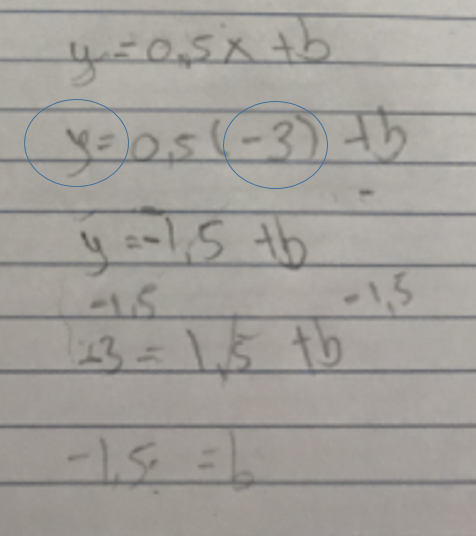 y=0,5x+b
y=0,5(-3)+b
-
y=-1,5+b
-1,5 -1,5
-3=1,5+b
-1,5=b